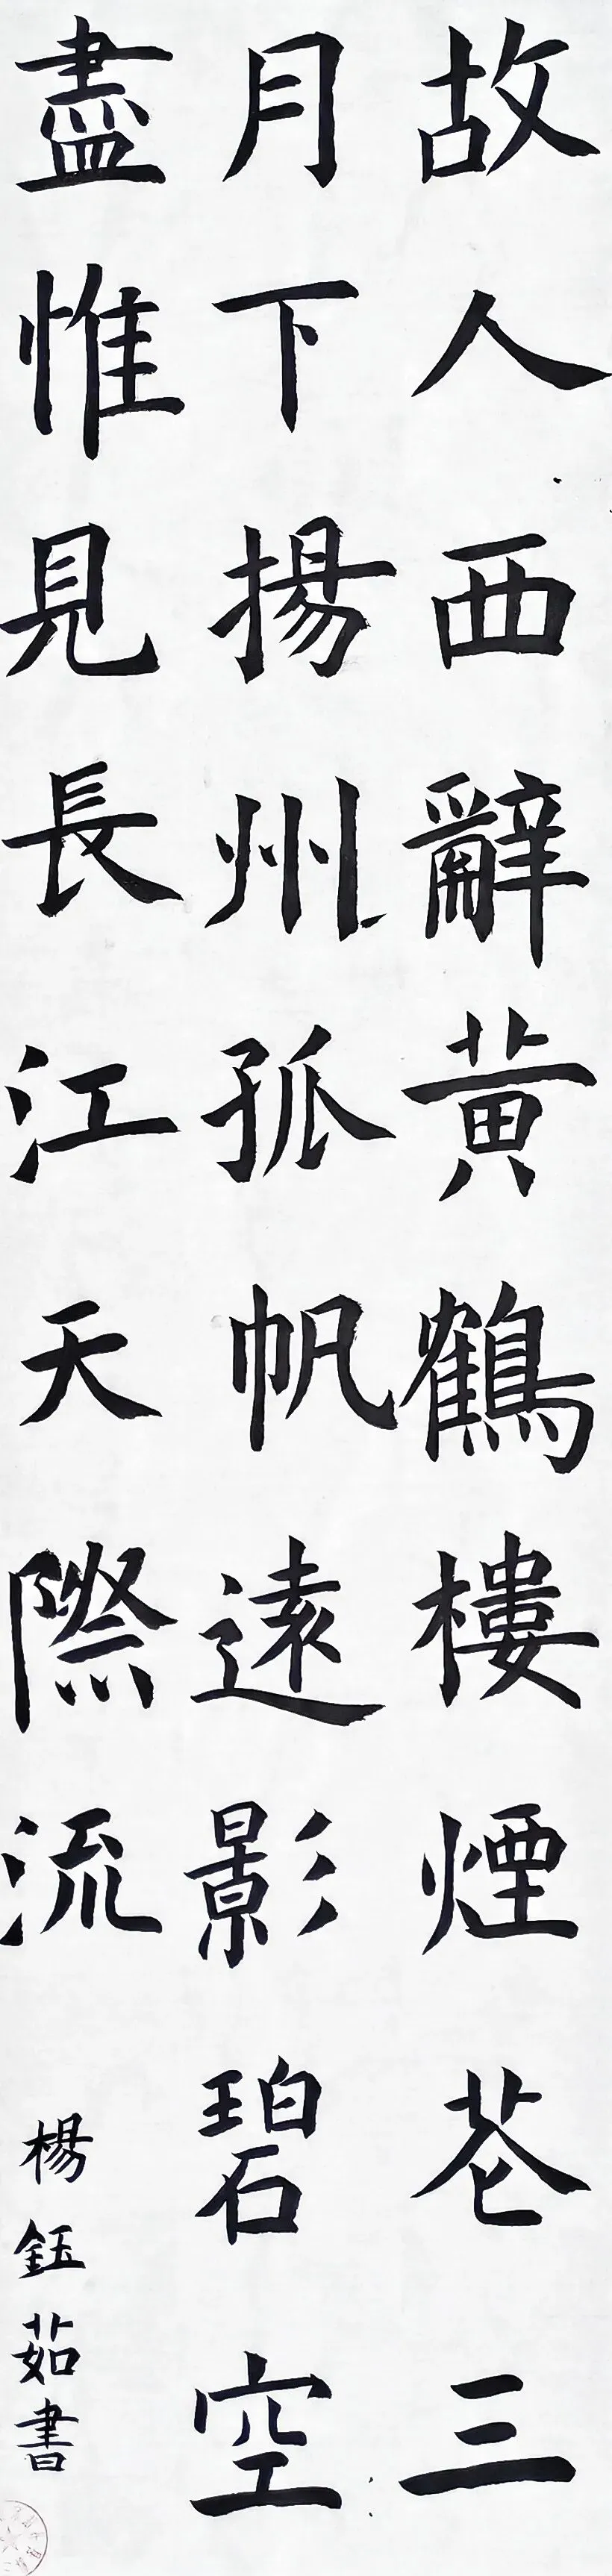 故人西辭黄鶴樓煙花三
月下揚州孤帆遠影碧空
盡惟見長江天際流
楊鈺茹書